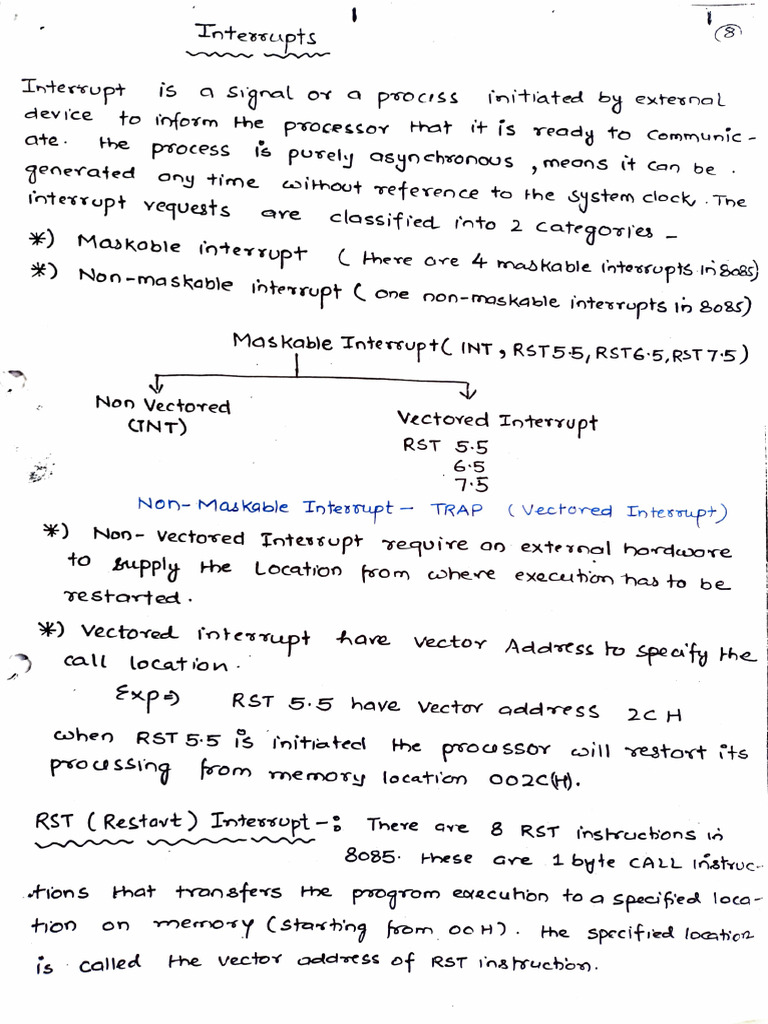 8
Interrupts
Interrupt is a signal or a process initiated by external
device to inform the processor that it is ready to communic-
ate. the process is purely asynchronous, means it can be.
generated any time without reference to the system clock. The
interrupt requests are classified into 2 categories -
*) Maskable interrupt (there are 4 maskable interrupts in 8085)
*) Non-maskable interrupt (one non-maskable interrupts in 8085)
Maskable Interrupt (INT, RST 5.5, RST 6.5, RST 7.5)
Non Vectored
(INT)
Vectored Interrupt
RST 5.5
6.5
7.5
Non-Maskable Interrupt - TRAP (Vectored Interrupt)
*) Non-vectored Interrupt require an external hardware
to supply the Location from where execution has to be
restarted.
*) Vectored interrupt have vector Address to specify the
call location.
Exp⇒ RST 5.5 have vector address 2C H
when RST 5.5 is initiated the processor will restart its
processing from memory location 002C(H).
RST (Restart) Interrupt -: There are 8 RST instructions in
8085. these are 1 byte CALL instruc-
tions that transfers the program execution to a specified loca-
tion on memory (starting from 00H). the specified location
is called the vector address of RST instruction.